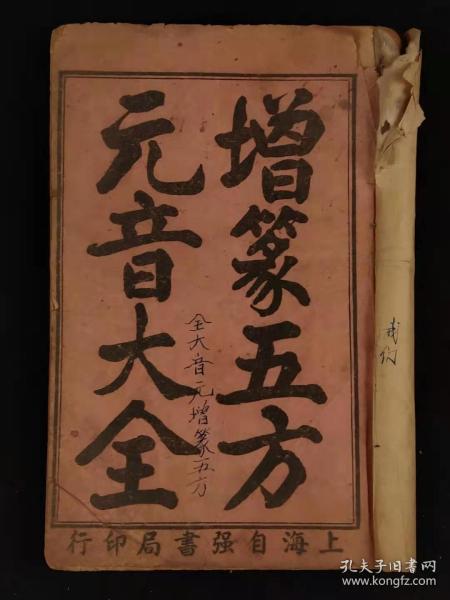 增篆五方
元音大全
全大音元增篆五方
上海自强書局印行
孔夫子旧书网
www.kongfz.com